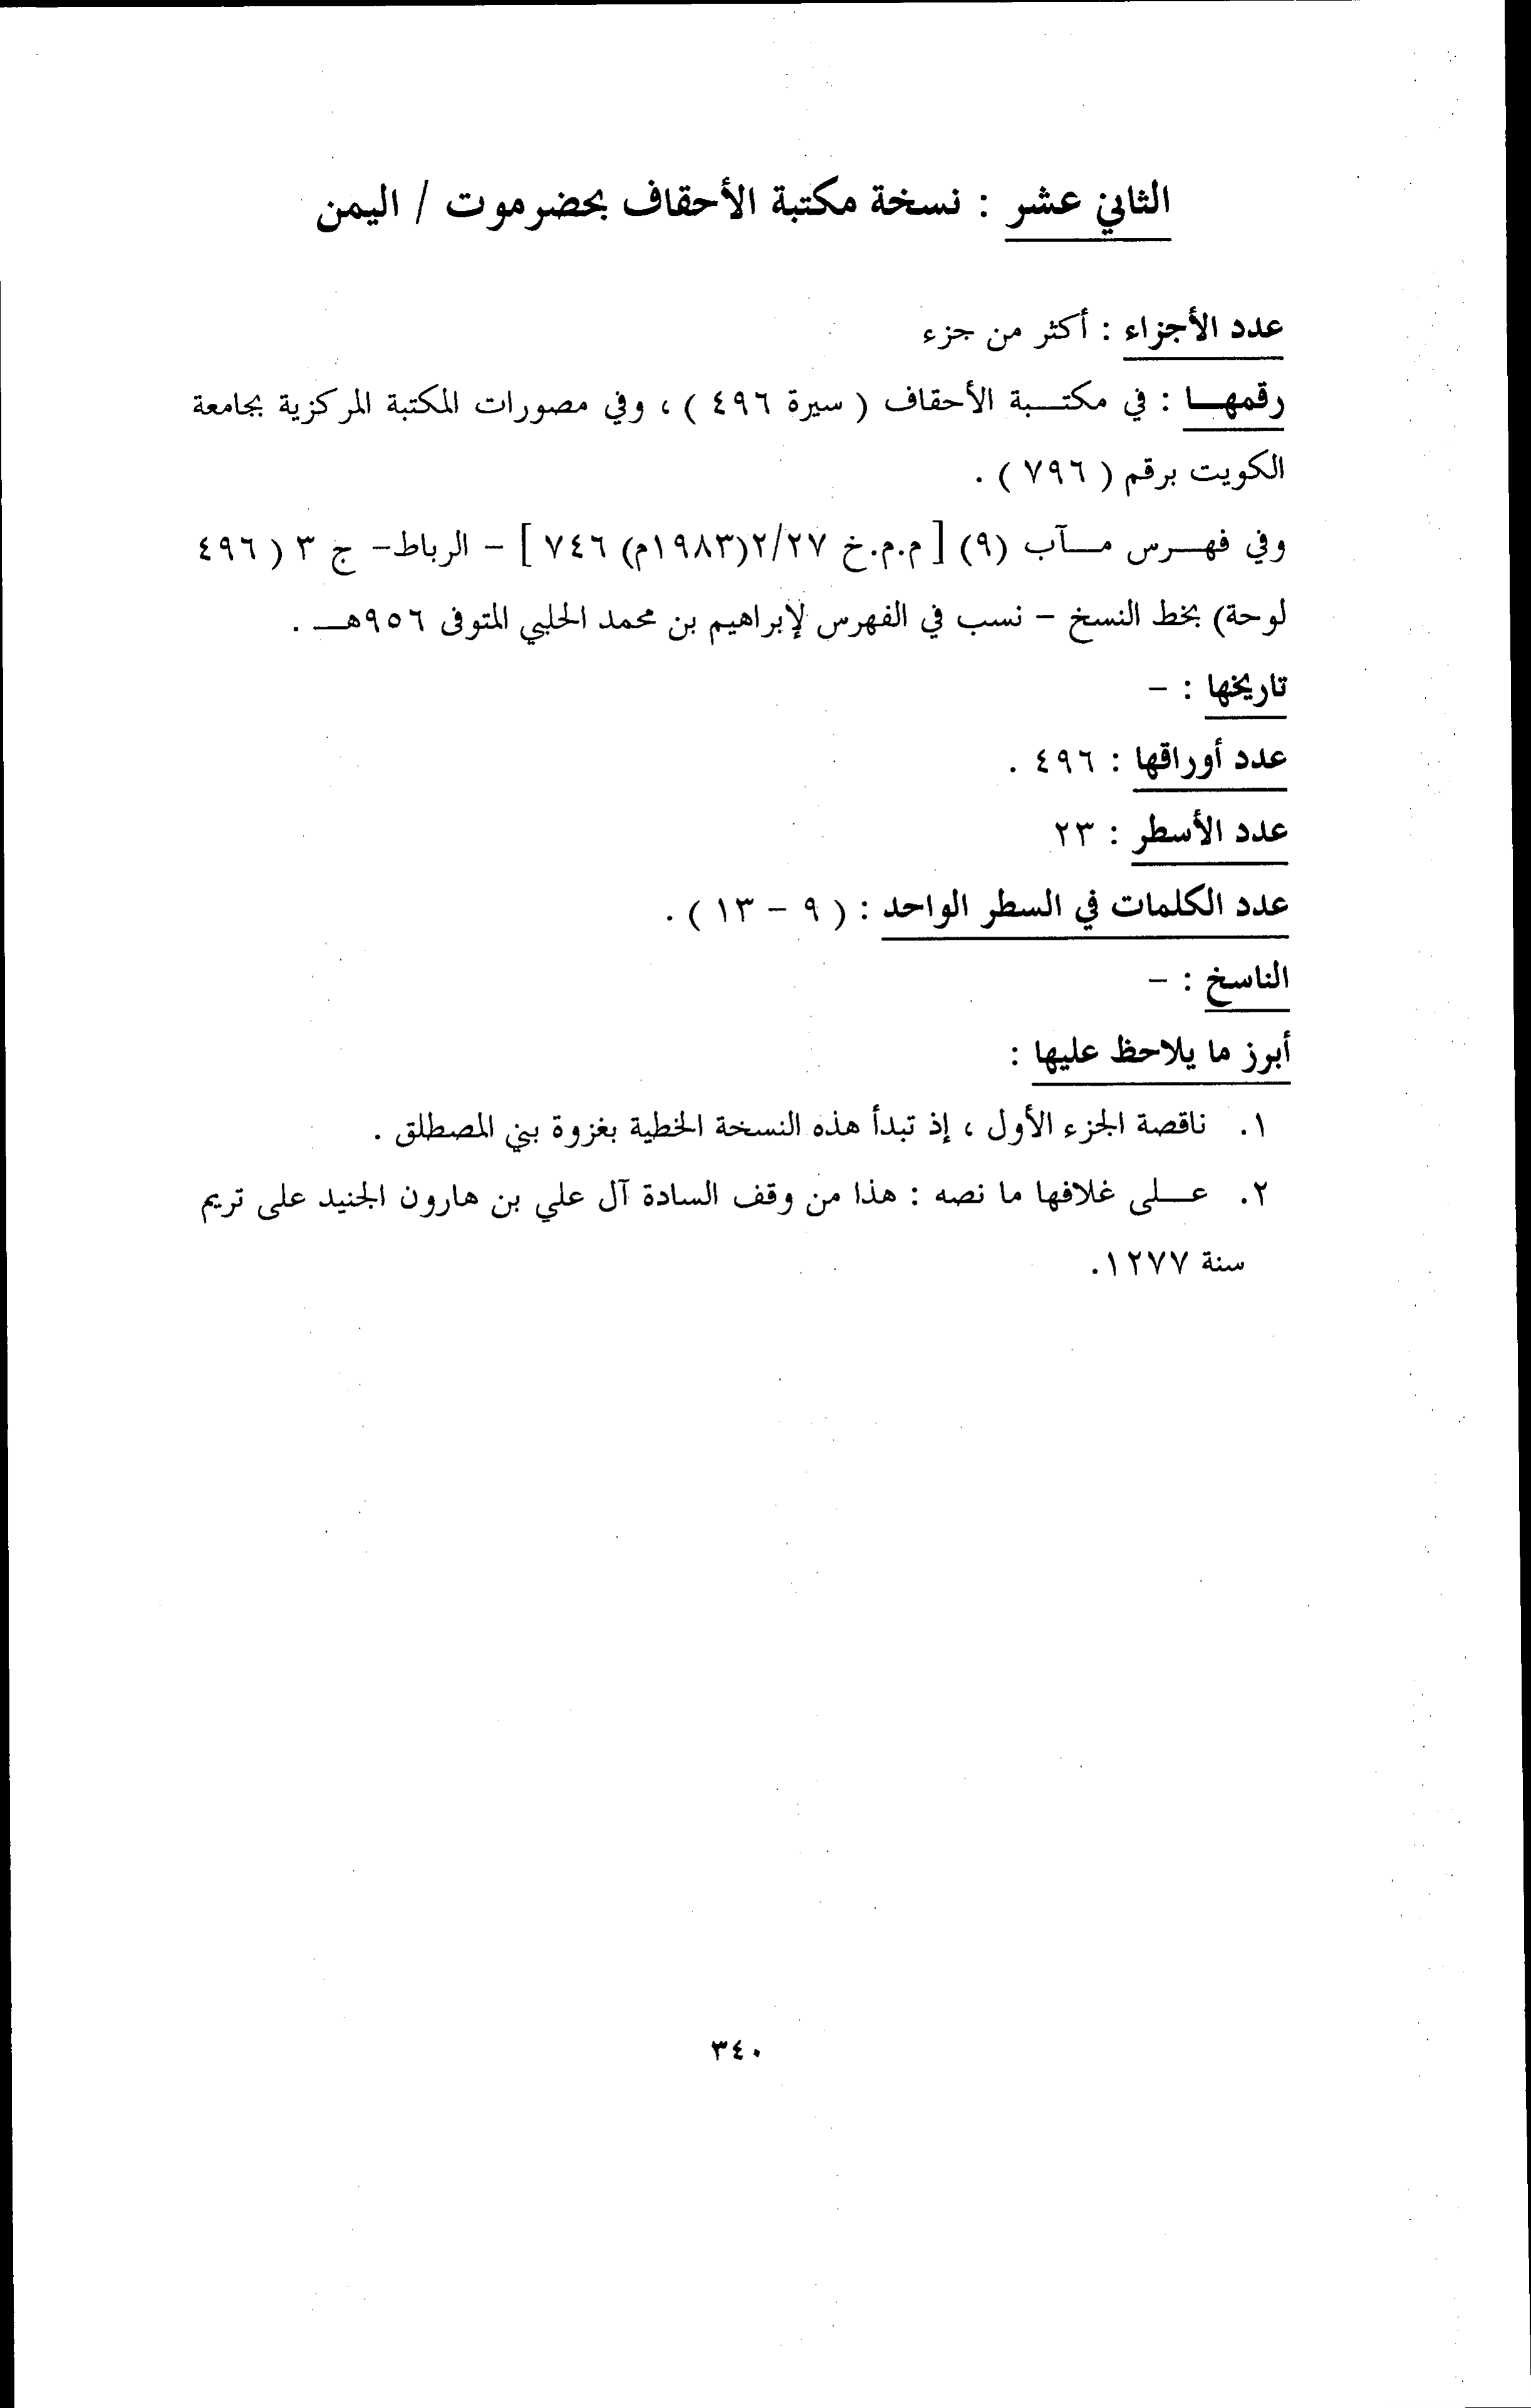 الثاني عشر : نسخة مكتبة الأحقاف بحضرموت / اليمن
عدد الأجزاء : أكثر من جزء
رقمهـا : في مكتـبة الأحقاف ( سيرة ٤٩٦ ) ، وفي مصورات المكتبة المركزية بجامعة
الكويت برقم ( ٧٩٦ ) .
وفي فهـرس مـآب (٩) [ م.م.خ ٢/٢٧(١٩٨٣م) ٧٤٦ ] – الرباط– ج ٣ ( ٤٩٦
لوحة) بخط النسخ – نسب في الفهرس لإبراهيم بن محمد الحلبي المتوفى ٩٥٦هـ .
تاريخها : –
عدد أوراقها : ٤٩٦ .
عدد الأسطر : ٢٣
عدد الكلمات في السطر الواحد : ( ٩ – ١٣ ) .
الناسخ : –
أبرز ما يلاحظ عليها :
١. ناقصة الجزء الأول ، إذ تبدأ هذه النسخة الخطية بغزوة بني المصطلق .
٢. عـلى غلافها ما نصه : هذا من وقف السادة آل علي بن هارون الجنيد على تريم
سنة ١٢٧٧.
٣٤٠